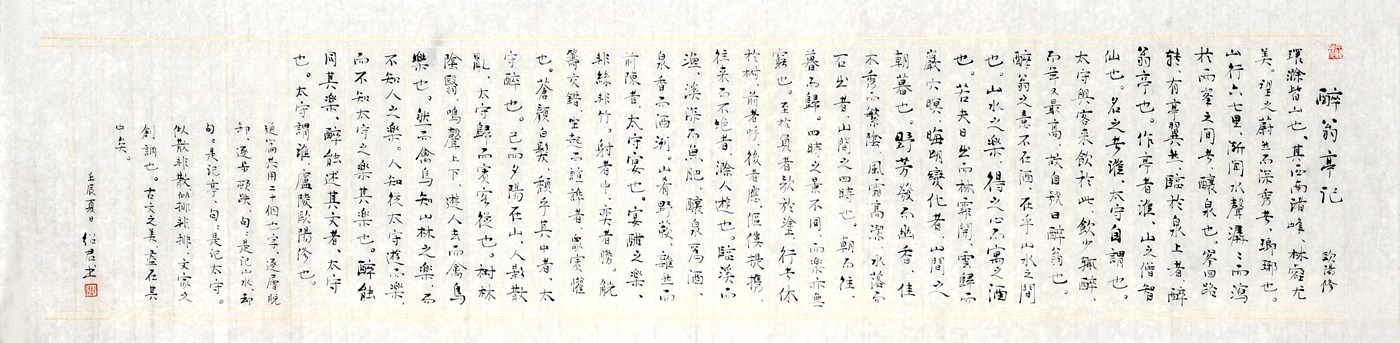 醉翁亭記 歐陽修
環滁皆山也。其西南諸峰，林壑尤
美。望之蔚然而深秀者，瑯琊也。
山行六七里，漸聞水聲潺潺而瀉
於兩峯之間者，釀泉也。峯回路
轉，有亭翼然臨於泉上者，醉
翁亭也。作亭者誰，山之僧智
仙也。名之者誰，太守自謂也。
太守與客來飲於此，飲少輒醉，
而年又最高，故自號曰醉翁也。
醉翁之意不在酒，在乎山水之間
也。山水之樂，得之心而寓之酒
也。若夫日出而林霏開，雲歸而
巖穴暝，晦明變化者，山間之
朝暮也。野芳發而幽香，佳
木秀而繁陰，風霜高潔，水落而
石出者，山間之四時也。朝而往，
暮而歸。四時之景不同，而樂亦無
窮也。至於負者歌於塗，行者休
於樹，前者呼，後者應，傴僂提攜
往來而不絕者，滁人遊也。臨溪而
漁，溪深而魚肥。釀泉為酒，
泉香而酒洌。山肴野蔌，雜然而
前陳者，太守宴也。宴酣之樂，
非絲非竹。射者中，奕者勝，觥
籌交錯，坐起而諠譁者，衆賓懽
也。蒼顏白髮，頹乎其中者，太
守醉也。已而夕陽在山，人影散
亂，太守歸而賓客從也。樹林
陰翳，鳴聲上下，遊人去而禽鳥
樂也。然而禽鳥知山林之樂，而
不知人之樂。人知從太守遊而樂，
而不知太守之樂其樂也。醉能
同其樂，醒能述其文者，太守
也。太守謂誰，廬陵歐陽修也。
通篇共用二十個也字，逐層脫
卸，逐步頓跌，句句是記山水，却
句句是記亭，句句是記太守。
似散非散，似排非排，文家之
創調也。古文之美，盡在其
中矣。
壬辰夏日 紹君書